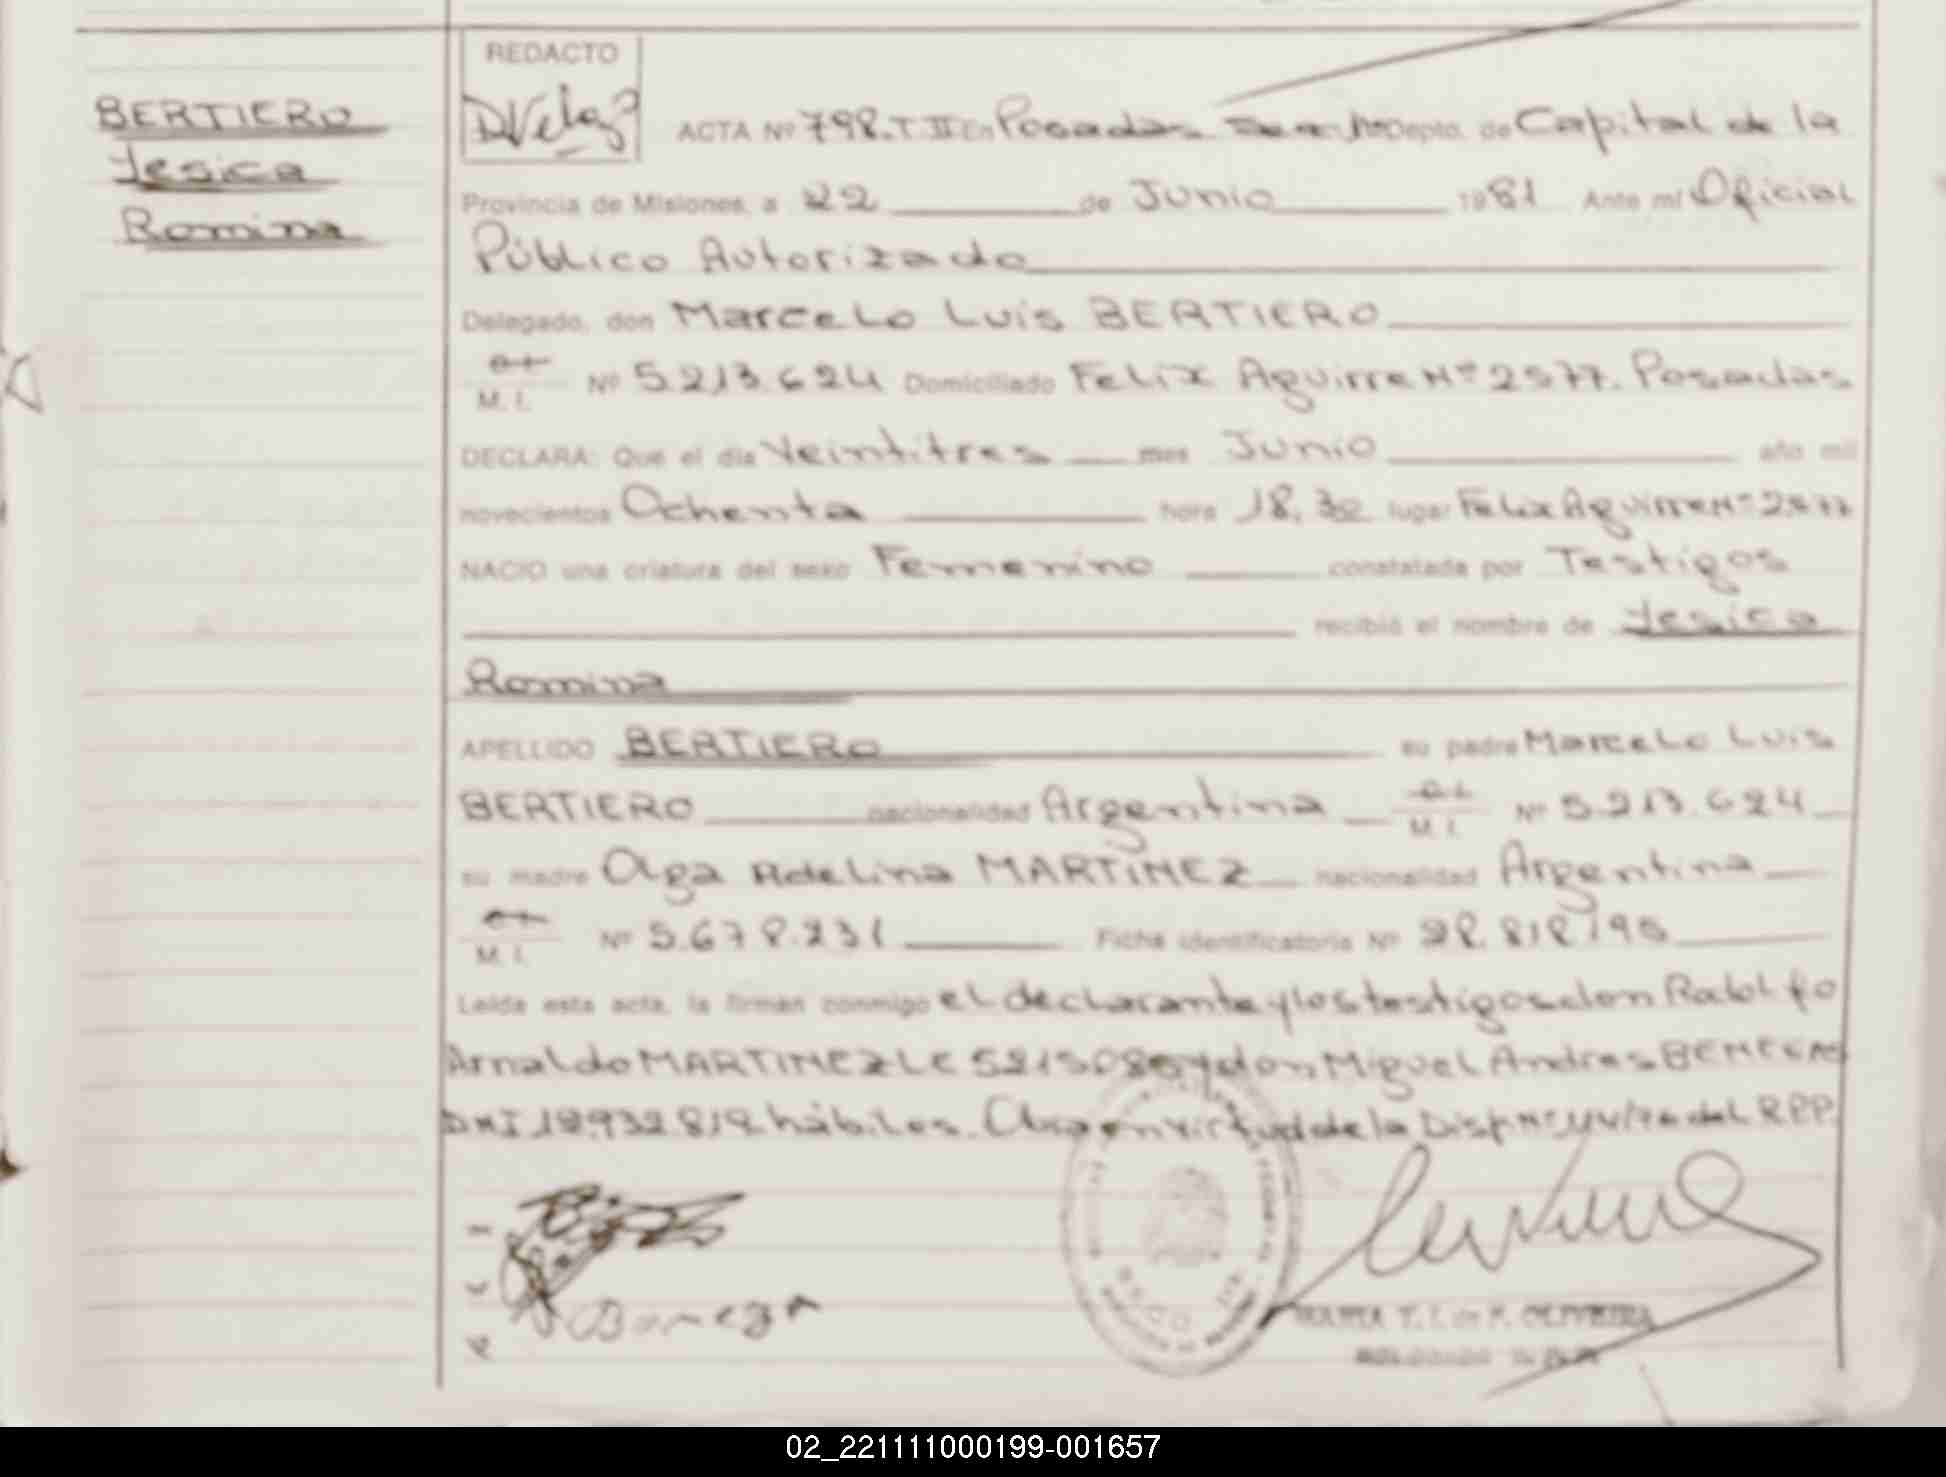 BERTIERO
Yesica
Romina
REDACTO
ACTA Nº 798. T. II En Posadas Depto. de Capital de la
Provincia de Misiones, a 22 de Junio 1981 Ante mí Oficial
Público Autorizado
Delegado, don Marcelo Luis BERTIERO
M. I. Nº 5.213.624 Domiciliado Felix Aguirre Nº 2577. Posadas
DECLARA: Que el día Veintitres mes Junio año mil
novecientos Ochenta hora 18,30 lugar Felix Aguirre Nº 2577
NACIO una criatura del sexo Femenino constatada por Testigos
recibió el nombre de Yesica
Romina
APELLIDO BERTIERO su padre Marcelo Luis
BERTIERO nacionalidad Argentina M. I. Nº 5.213.624
su madre Olga Adelina MARTINEZ nacionalidad Argentina
M. I. Nº 5.678.231 Ficha identificatoria Nº 28.818195
Leída esta acta, la firman conmigo el declarante y los testigos don
Arnaldo MARTINEZ LE y don Miguel Andres
DNI hábiles. en virtud de la Disp Nº del RPP.
OLIVEIRA
02_221111000199-001657